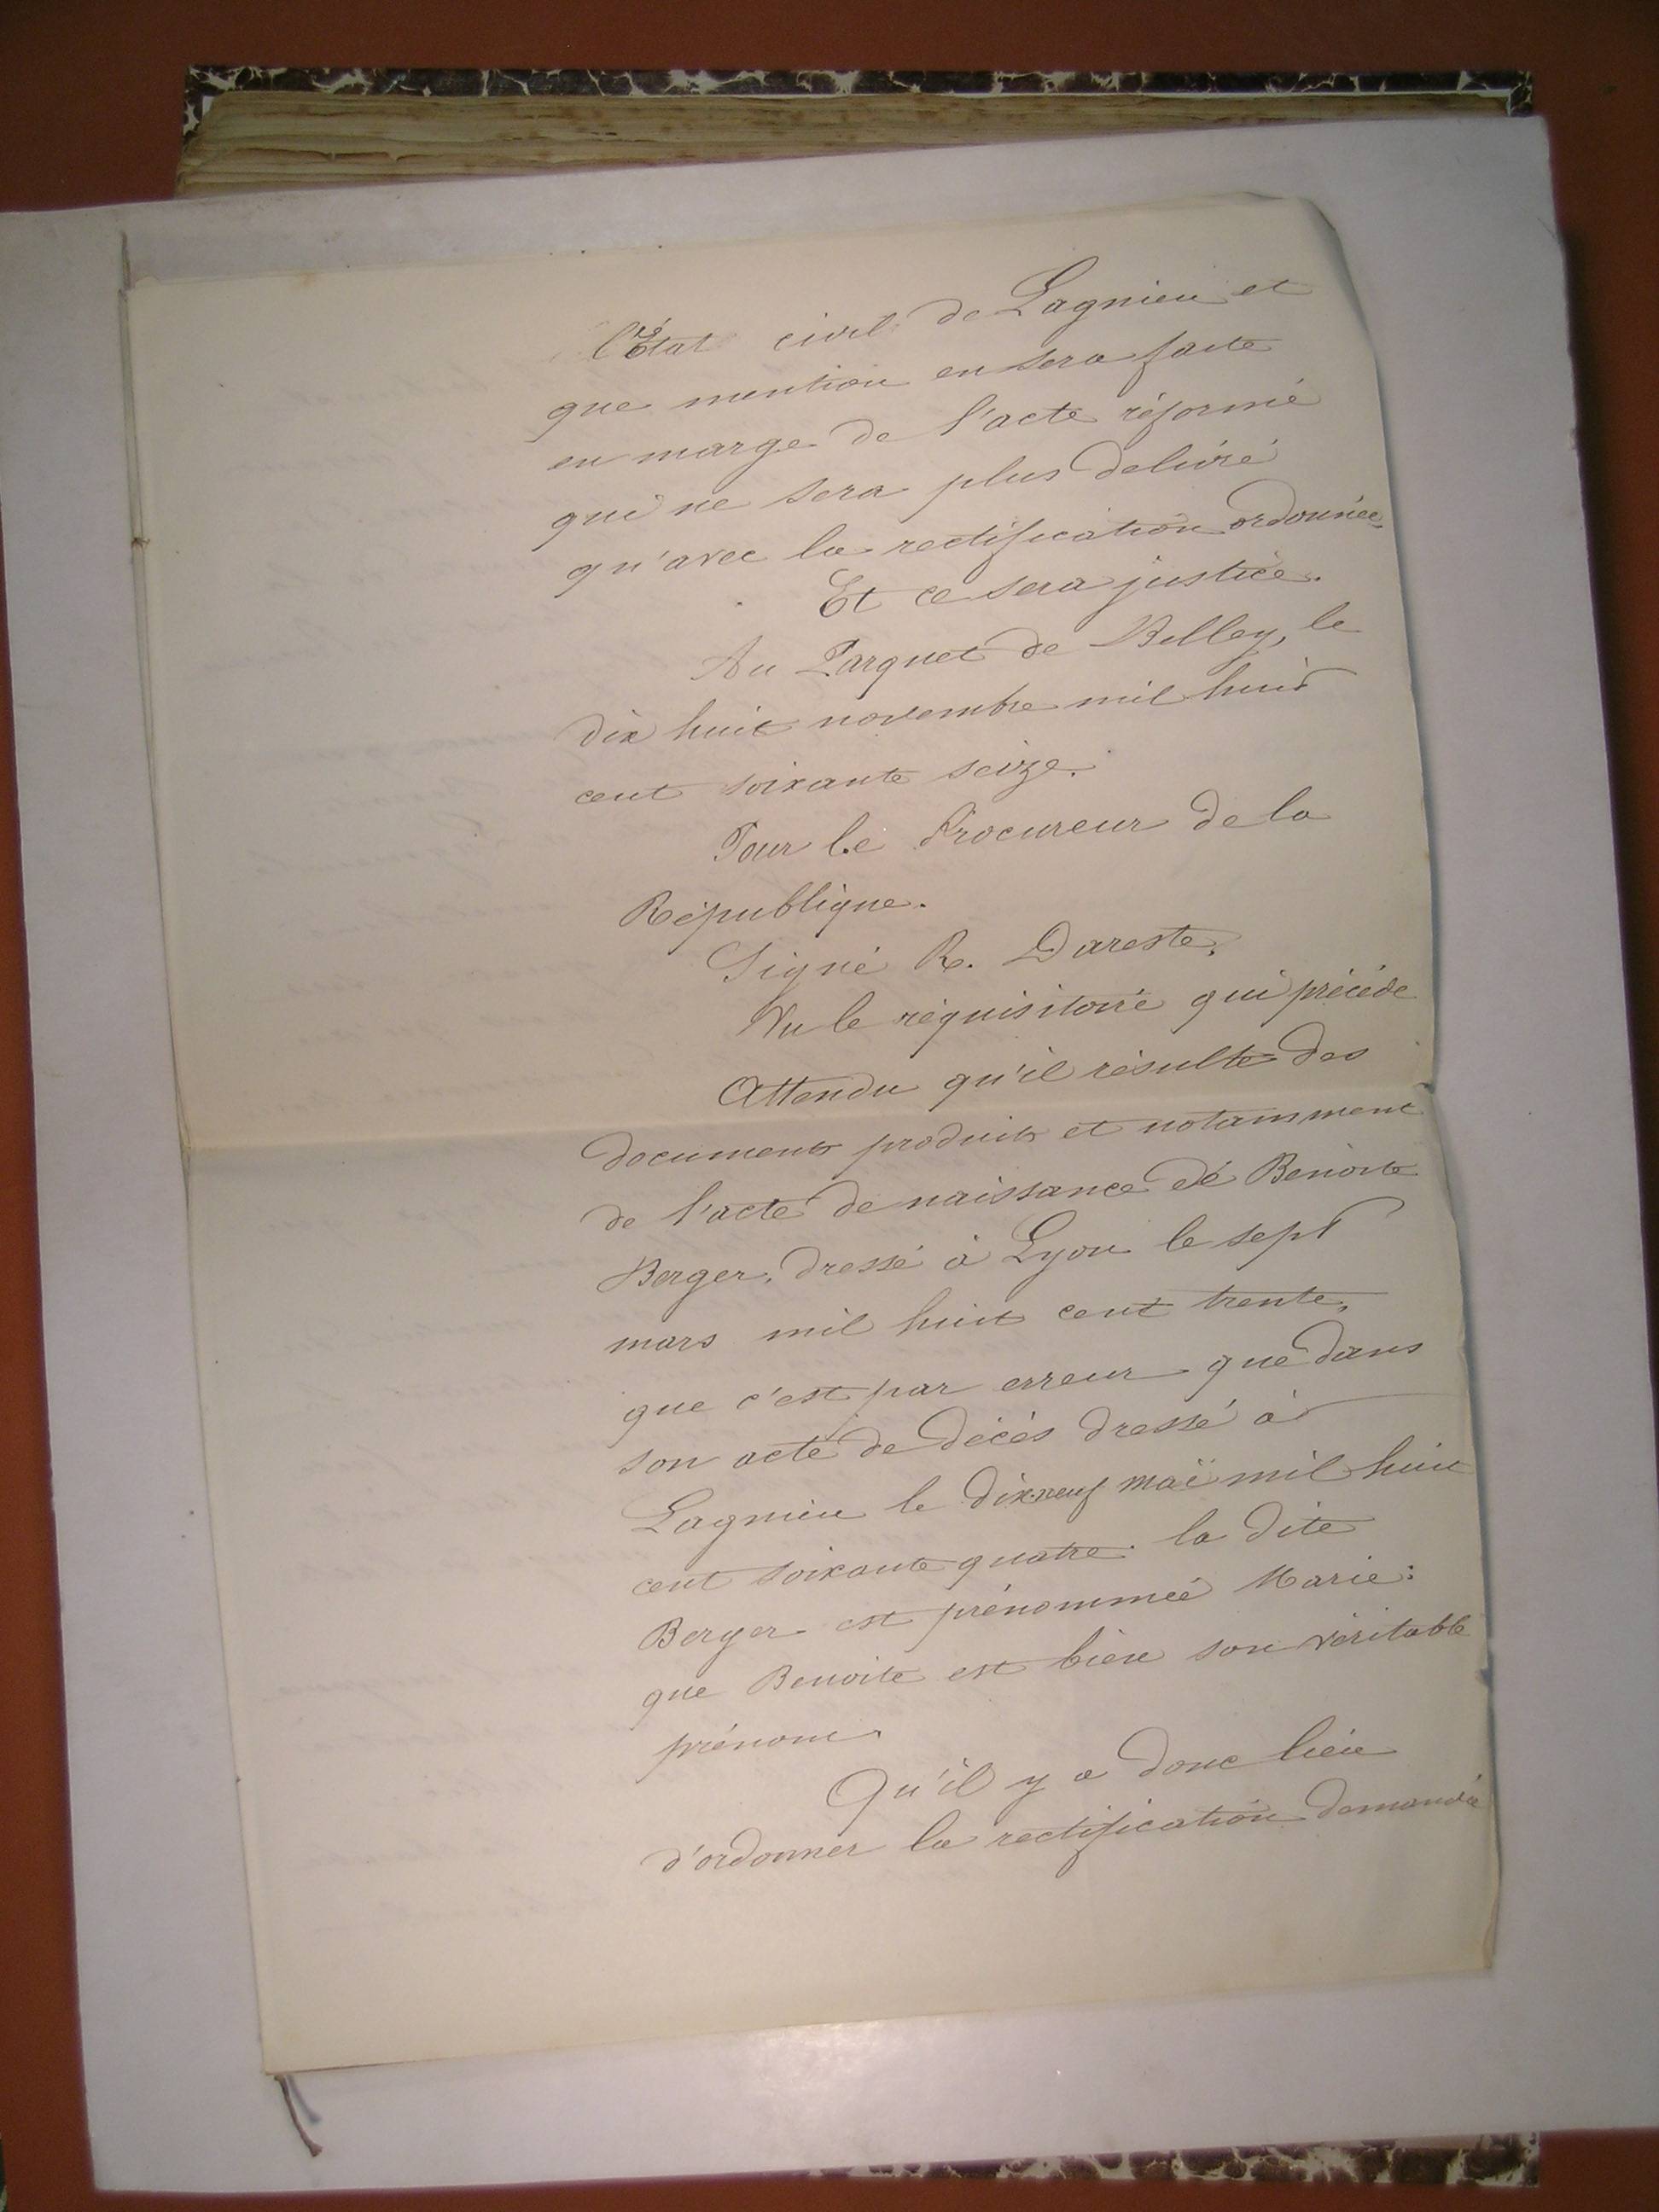 l'État civil de Lagnieu et
que mention en sera faite
en marge de l'acte réformé
qui ne sera plus delivré
qu'avec la rectification ordonnée.
Et ce sera justice.
Au Parquet de Belley, le
dix huit novembre mil huit
cent soixante seize.
Pour le Procureur de la
République.
Signé R. Dareste.
Vu le réquisitoire qui précède
Attendu qu'il résulte des
documents produits et notamment
de l'acte de naissance de Benoite
Berger, dressé à Lyon le sept
mars mil huit cent trente,
que c'est par erreur que dans
son acte de décès dressé à
Lagnieu le dix-neuf mai mil huit
cent soixante quatre la dite
Berger est prénommée Marie:
que Benoite est bien son véritable
prénom.
Qu'il y a donc lieu
d'ordonner la rectification demandée